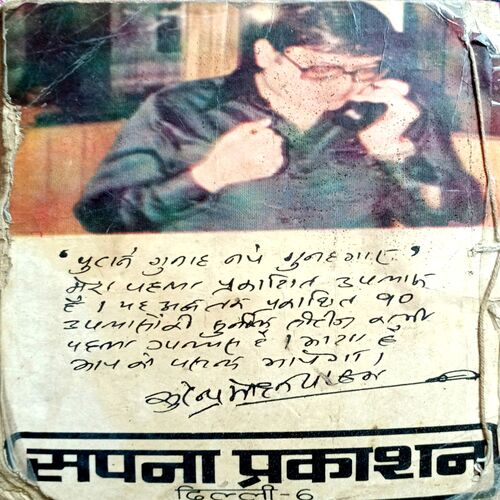 'पुराने गुनाह नये गुनहगार'
मेरा पहला प्रकाशित उपन्यास
है । यह अब तक प्रकाशित १०
उपन्यासों की सीरीज का भी
पहला उपन्यास है । आशा है
आप को पसन्द आयेगा ।
सुरेन्द्र मोहन पाठक
सपना प्रकाशन
दिल्ली-6